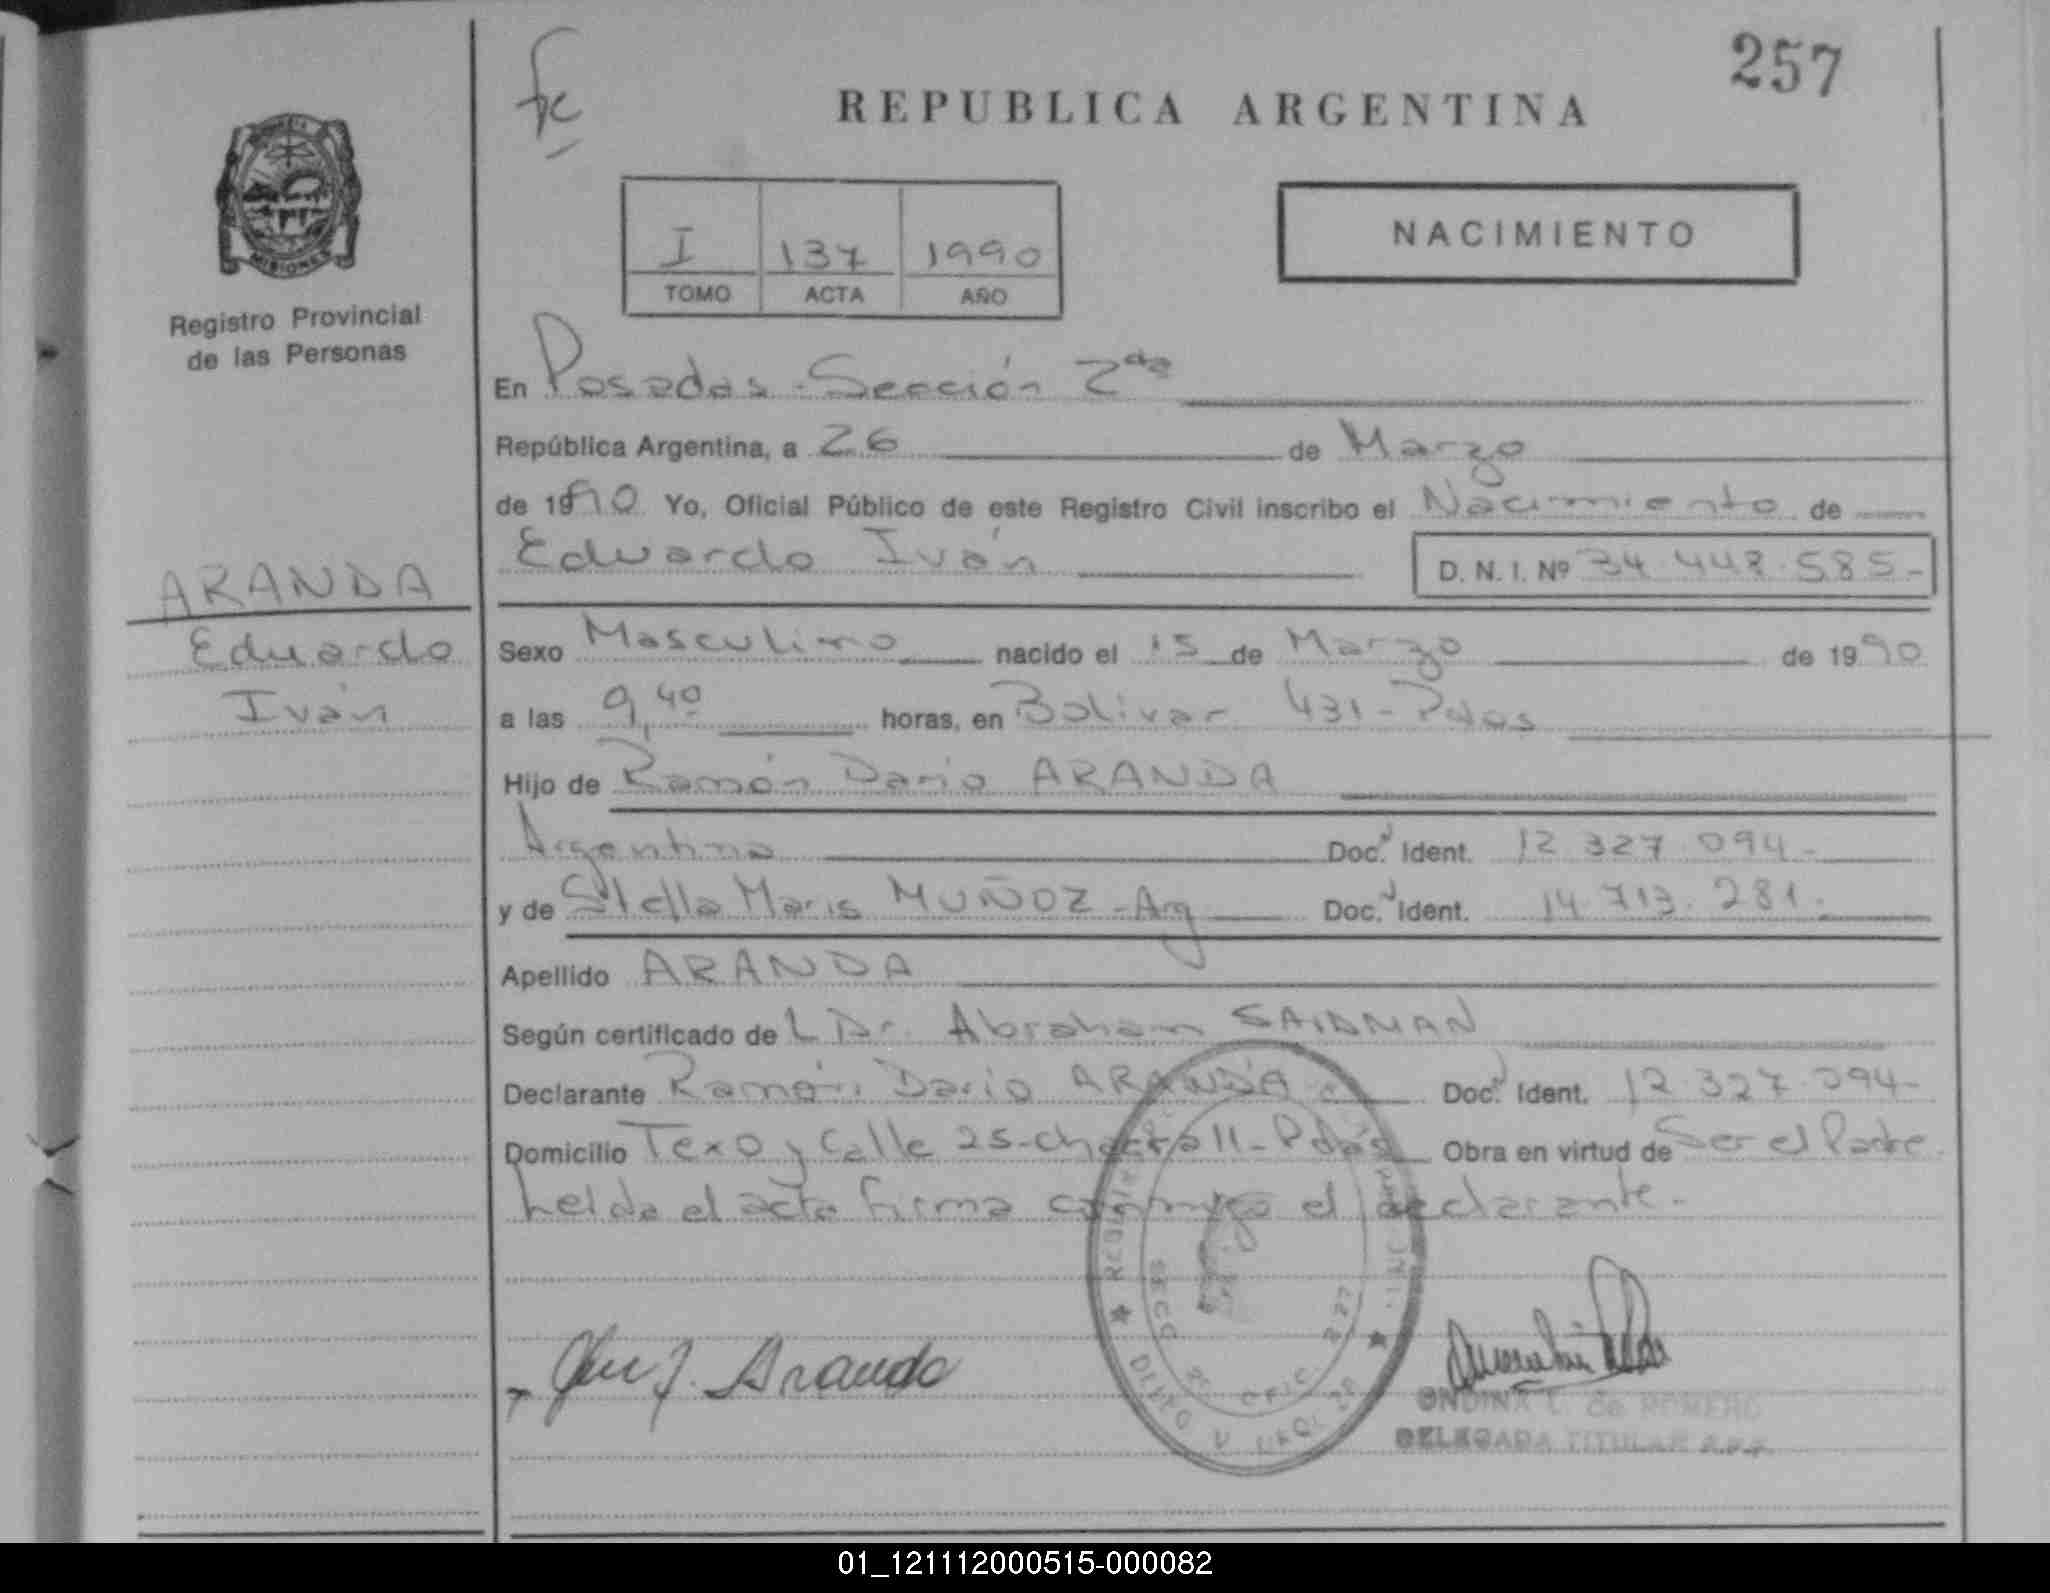 257
fc
REPUBLICA ARGENTINA
MISIONES
Registro Provincial
de las Personas
I 137 1990
TOMO ACTA AÑO
NACIMIENTO
En Posadas - Sección 2da
República Argentina, a 26 de Marzo
de 1990 Yo, Oficial Público de este Registro Civil inscribo el Nacimiento de
Eduardo Iván D. N. I. Nº 34.448.585-
ARANDA
Eduardo
Iván
Sexo Masculino nacido el 15 de Marzo de 1990
a las 9,40 horas, en Bolivar 431 - Pdas
Hijo de Ramón Dario ARANDA
Argentina Doc. Ident. 12.327.094-
y de Stella Maris MUÑOZ - Arg Doc. Ident. 14.713.281.
Apellido ARANDA
Según certificado de L Dr. Abraham SAIDMAN
Declarante Ramón Dario ARANDA Doc. Ident. 12.327.094-
Domicilio Texo y Calle 25 - chacra 11 - Pdas Obra en virtud de Ser el Padre
Leída el acta firma conmigo el declarante.
Aranda
ONDINA L. de ROMERO
DELEGADA TITULAR
01_121112000515-000082